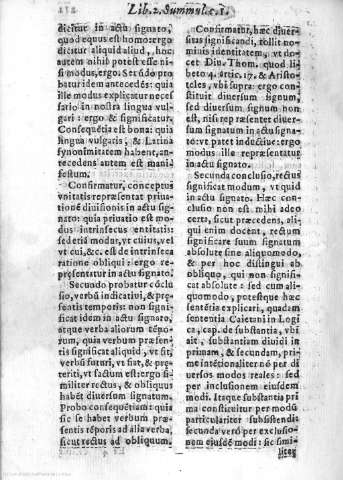 Lib.2. Summul. c.1.
dicitur in actu signato,
quod equus est homo: ergo
dicitur aliquid aliud, hoc
autem nihil potest esse ni-
si modus, ergo. Secūdo pro
batur idem antecedēs: quia
ille modus explicatur neces
sario in nostra lingua vul-
gari: ergo & significatur.
Consequētia est bona: quia
lingua vulgaris, & Latina
synonimitatem habent, an-
tecedens autem est mani-
festum.
Confirmatur, conceptus
vnitatis repręsentat priua-
tionē diuisionis in actu si-
gnato: quia priuatio est mo
dus intrinsecus entitatis:
sed etiā modus, vt cuius, vel
vt cui, &c. est de intrinseca
ratione obliqui: ergo re-
pręsentatur in actu signato.
Secundo probatur cōclu
sio, verbū indicatiui, & prę-
sentis temporis non signi-
ficat idem in actu signato,
atque verba aliorum tēpo-
rum, quia verbum pręsen-
tis significat aliquid, vt sit,
verbū futuri, vt fiat, & prę-
teriti, vt factum est: ergo si-
militer rectus, & obliquus
habēt diuersum signatum.
Probo consequētiam: quia
sic se habet verbum prę-
sentis tēporis ad alia verba,
sicut rectus ad obliquum.
Confirmatur, hæc diuer-
sitas significandi, tollit no-
minis identitatem, vt do-
cet Diu. Thom. quod li-
beto 4. artic. 17. & Aristo-
teles, vbi supra: ergo con-
stituit diuersum signum,
sed diuersum signum non
est, nisi repræsentet diuer-
sum signatum in actu signa-
to: vt patet inductiue: ergo
modus ille repræsentatur
in actu signato.
Secunda conclusio, rectus
significat modum, vt quid
in actu signato. Hæc con-
clusio non est mihi adeo
certa, sicut præcedens, ali-
qui enim docent, rectum
significare suum signatum
absolute sine aliquo modo,
& per hoc distingui ab
obliquo, qui non signifi-
cat absolute: sed cum ali-
quo modo, potestque hæc
sentētia explicari, quadam
sententia Caietani in Logi
ca, cap. de substantia, vbi
ait, substantiam diuidi in
primam, & secundam, pri-
mæ intētionaliter nō per di
uersos modos reales: sed
per inclusionem eiusdem
modi. Itaque substantia pri
ma constituitur per modū
particulariter subsistendi
secunda verò per exclusio-
nem eiusdē modi: sic simi-
liter